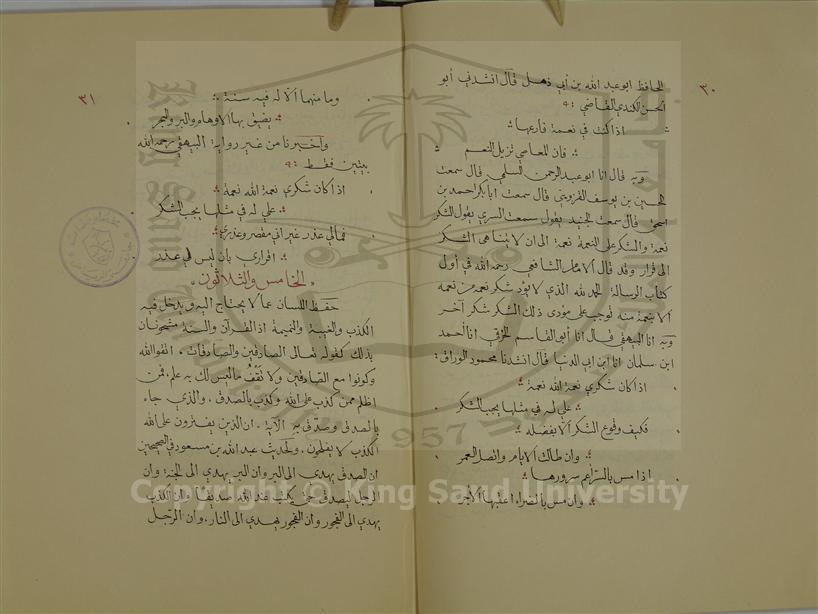 ٣٠
الحافظ ابو عبد الله بن أبي ذهل قال انشدني أبو
الحسن الكندي القاضي
اذا كنت في نعمة فارعها
فان المعاصي تزيل النعم
وبه قال انا ابو عبد الرحمن السلمي قال سمعت
الحسين بن يوسف القزويني قال سمعت ابا بكر احمد بن
اسحق قال سمعت الجنيد يقول سمعت السري يقول الشكر
نعمة والشكر على النعمة نعمة الى ان لا يتناهى الشكر
الى قرار وقد قال الامام الشافعي رحمه الله في أول
كتاب الرسالة الحمد لله الذي لا يؤد شكر نعمة من نعمه
ألا بنعمة منه توجب على مؤدى ذلك الشكر شكر آخر
وبه انا البيهقي قال انا أبو القاسم الحرفي انا أحمد
ابن سلمان انا ابن ابي الدنيا قال انشدنا محمود الوراق
اذا كان شكري نعمة الله نعمة
علي له في مثلها يجب الشكر
فكيف وقوع الشكر ألا بفضله
وان طالت الايام واتصل العمر
اذا مس بالسراء عم سرورها
وان مس بالضراء اعقبها الأجر
٣١
وما منهما ألا له فيه سنة
يضيق بها الاوهام والبر والبحر
وأخبرنا من غير رواية البيهقي رحمه الله
بيتين فقط
اذا كان شكري نعمة الله نعمة
علي له في مثلها يجب الشكر
فمالي عذر غير اني مقصر وعذري
اقراري بان ليس لي عذر
الخامس والثلاثون
حفظ اللسان عما لا يحتاج اليه ويدخل فيه
الكذب والغيبة والنميمة اذ القرآن والسنة مشحونان
بذلك كقوله تعالى الصادقين والصادقات، اتقوا الله
وكونوا مع الصادقين ولا تَقْفُ ما ليس لك به علم، فمن
اظلم ممن كذب على الله وكذب بالصدق، والذي جاء
بالصدق وصدّق به الآية، ان الذين يفترون على الله
الكذب لا يفلحون، ولحديث عبد الله بن مسعود في الصحيحين
ان الصدق يهدي الى البر وان البر يهدي الى الجنة وان
الرجل ليصدق حتى يكتب عند الله صديقا وان الكذب
يهدي الى الفجور وان الفجور يهدي الى النار، وان الرجل
Copyright © King Saud University
1957